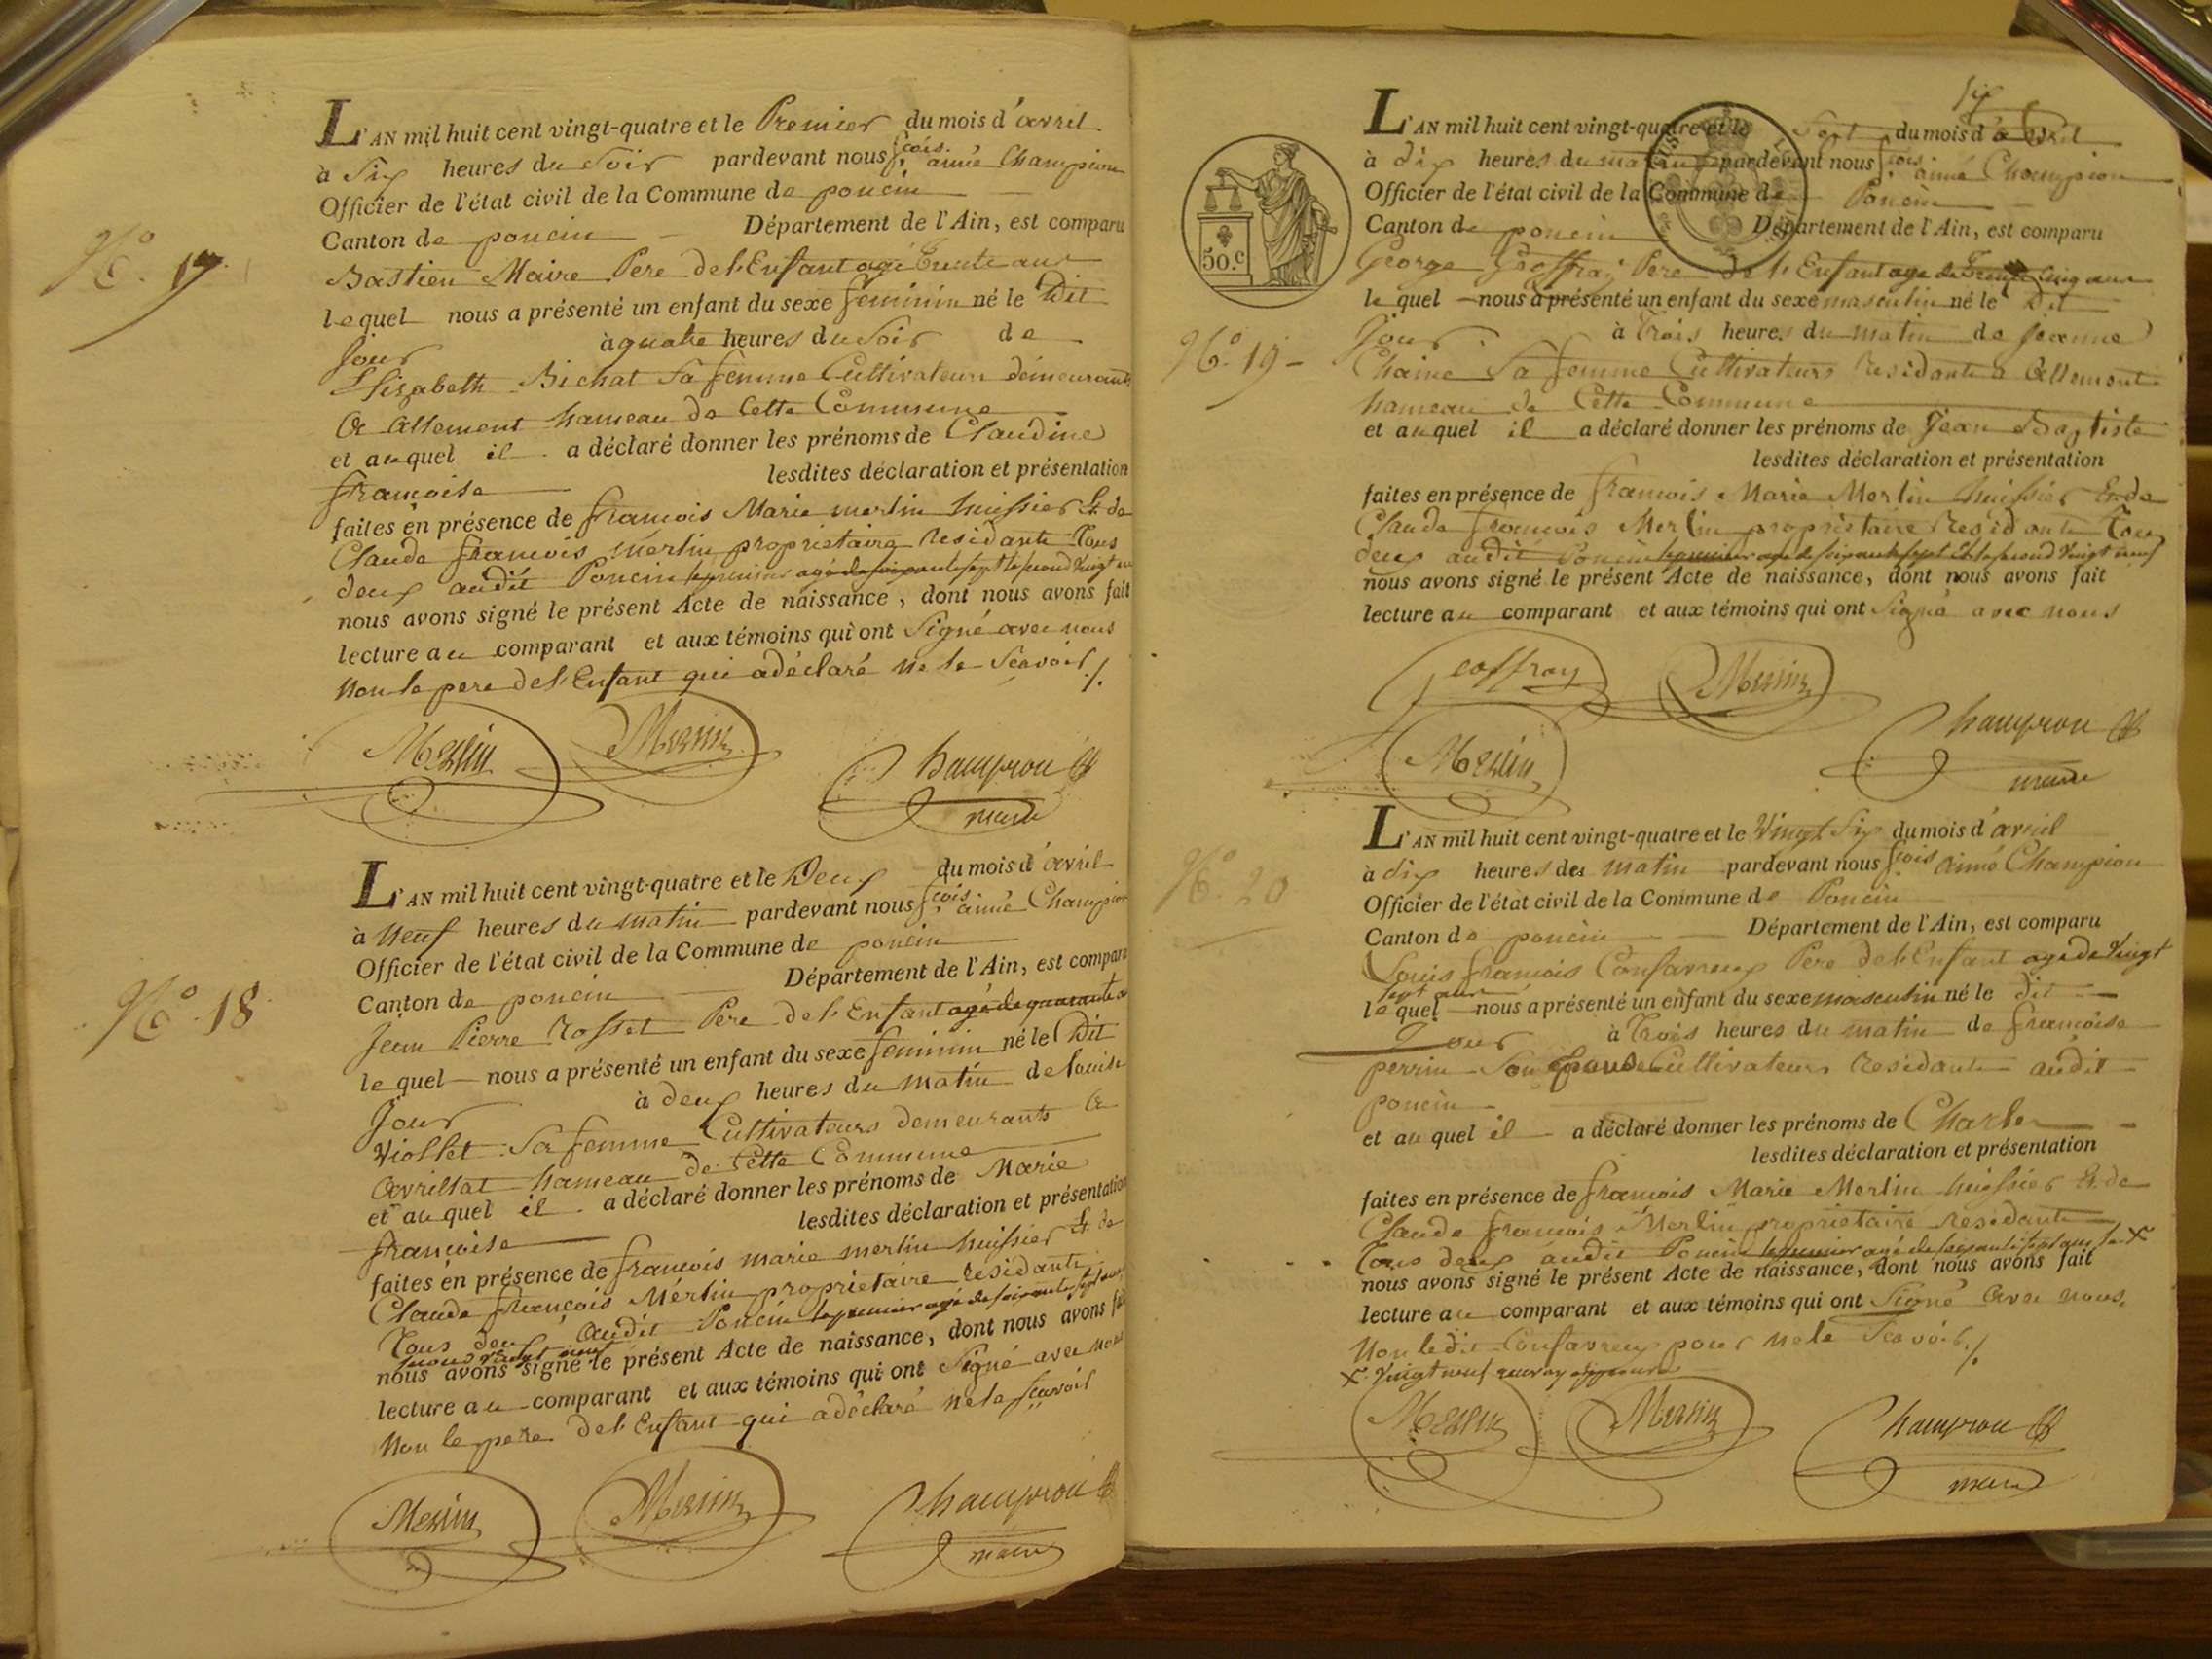 L'AN mil huit cent vingt-quatre et le Premier du mois d'avril
à Six heures du Soir pardevant nous fcois. aimé Champion
Officier de l'état civil de la Commune de poncin
Canton de poncin Département de l'Ain, est comparu
Bastien Maire Pere de l'Enfant agé Trente ans
lequel nous a présenté un enfant du sexe feminin né le Dit
Jour à quatre heures du Soir de
Elisabeth Bichat Sa femme Cultivateurs demeurants
A Allement hameau de Cette Commune
et auquel il a déclaré donner les prénoms de Claudine
françoise lesdites déclaration et présentation
faites en présence de françois Marie merlin huissier Et de
Claude françois merlin propriétaire residants Tous
deux audit Poncin le premier agé de soixante sept le second vingt
nous avons signé le présent Acte de naissance, dont nous avons fait
lecture au comparant et aux témoins qui ont Signé avec nous
Non le pere de l'Enfant qui a déclaré ne le Scavoir ./.
Merlin Merlin Champion
maire
N.º 17.
L'AN mil huit cent vingt-quatre et le Deux du mois d'avril
à Neuf heures du matin pardevant nous fcois. aimé Champion
Officier de l'état civil de la Commune de poncin
Canton de poncin Département de l'Ain, est comparu
Jean Pierre Rosset Pere de l'Enfant agé de quarante
lequel nous a présenté un enfant du sexe feminin né le Dit
Jour à deux heures du matin de louise
Viollet Sa femme Cultivateurs demeurants A
Avrillat hameau de Cette Commune
et auquel il a déclaré donner les prénoms de Marie
françoise lesdites déclaration et présentation
faites en présence de françois marie merlin huissier Et de
Claude François Merlin propriétaire residants
Tous deux audit Poncin le premier agé de soixante sept ans
second vingt neuf
nous avons signé le présent Acte de naissance, dont nous avons fait
lecture au comparant et aux témoins qui ont Signé avec nous
Non le pere de l'Enfant qui a déclaré ne le sçavoir
Merlin Merlin Champion
maire
N.º 18
six
L'AN mil huit cent vingt-quatre et le Sept du mois d'avril
à dix heures du matin pardevant nous fcois. aimé Champion
Officier de l'état civil de la Commune de Poncin
Canton de poncin Département de l'Ain, est comparu
George Geoffray Pere de l'Enfant agé de Trente Cinq ans
lequel nous a présenté un enfant du sexe masculin né le Dit
Jour à Trois heures du matin de Jeanne
Chaine Sa femme Cultivateurs residants a Allement
hameau de Cette Commune
et auquel il a déclaré donner les prénoms de Jean Baptiste
lesdites déclaration et présentation
faites en présence de françois Marie Merlin huissier Et de
Claude françois Merlin propriétaire residants Tous
deux audit Poncin le premier agé de soixante sept et le second vingt neuf
nous avons signé le présent Acte de naissance, dont nous avons fait
lecture au comparant et aux témoins qui ont Signé avec nous
Geoffray Merlin
Merlin Champion
maire
50.c
N.º 19
L'AN mil huit cent vingt-quatre et le Vingt Six du mois d'avril
à dix heures des matin pardevant nous fcois aimé Champion
Officier de l'état civil de la Commune de Poncin
Canton de poncin Département de l'Ain, est comparu
Louis françois Confavreux Pere de l'Enfant agé de Vingt
sept ans
lequel nous a présenté un enfant du sexe masculin né le dit
Jour à Trois heures du matin de françoise
perrin Son Epouse Cultivateurs residants audit
poncin
et auquel il a déclaré donner les prénoms de Charles
lesdites déclaration et présentation
faites en présence de françois Marie Merlin huissier Et de
Claude françois Merlin propriétaire residants
Tous deux audit Poncin le premier agé de soixante sept ans le X
nous avons signé le présent Acte de naissance, dont nous avons fait
lecture au comparant et aux témoins qui ont Signé avec nous,
Non ledit Confavreux pour ne le Scavoir ./.
X vingt neuf renvoy approuvé
Merlin Merlin Champion
maire
N.º 20